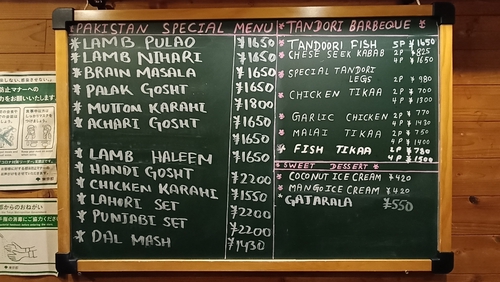 PAKISTAN SPECIAL MENU
LAMB PULAO ¥1650
LAMB NIHARI ¥1650
BRAIN MASALA ¥1650
PALAK GOSHT ¥1650
MUTTON KARAHI ¥1800
ACHARI GOSHT ¥1650
LAMB HALEEN ¥1650
HANDI GOSHT ¥2200
CHICKEN KARAHI ¥1550
LAHORI SET ¥2200
PUNJABI SET ¥2200
DAL MASH ¥1430
TANDORI BARBEQUE
TANDOORI FISH 5P ¥1650
CHESE SEEK KABAB 2P ¥825
4P ¥1650
SPECIAL TANDORI
LEGS 2P ¥980
CHICKEN TIKAA 2P ¥700
4P ¥1300
GARLIC CHICKEN 2P ¥770
4P ¥1430
MALAI TIKAA 2P ¥750
4P ¥1400
FISH TIKAA 2P ¥780
4P ¥1500
SWEET DESSERT
COCONUT ICE CREAM ¥420
MANGO ICE CREAM ¥420
GATARALA ¥550
止マナーへの
力をお願いいたします。
部からのおねがい